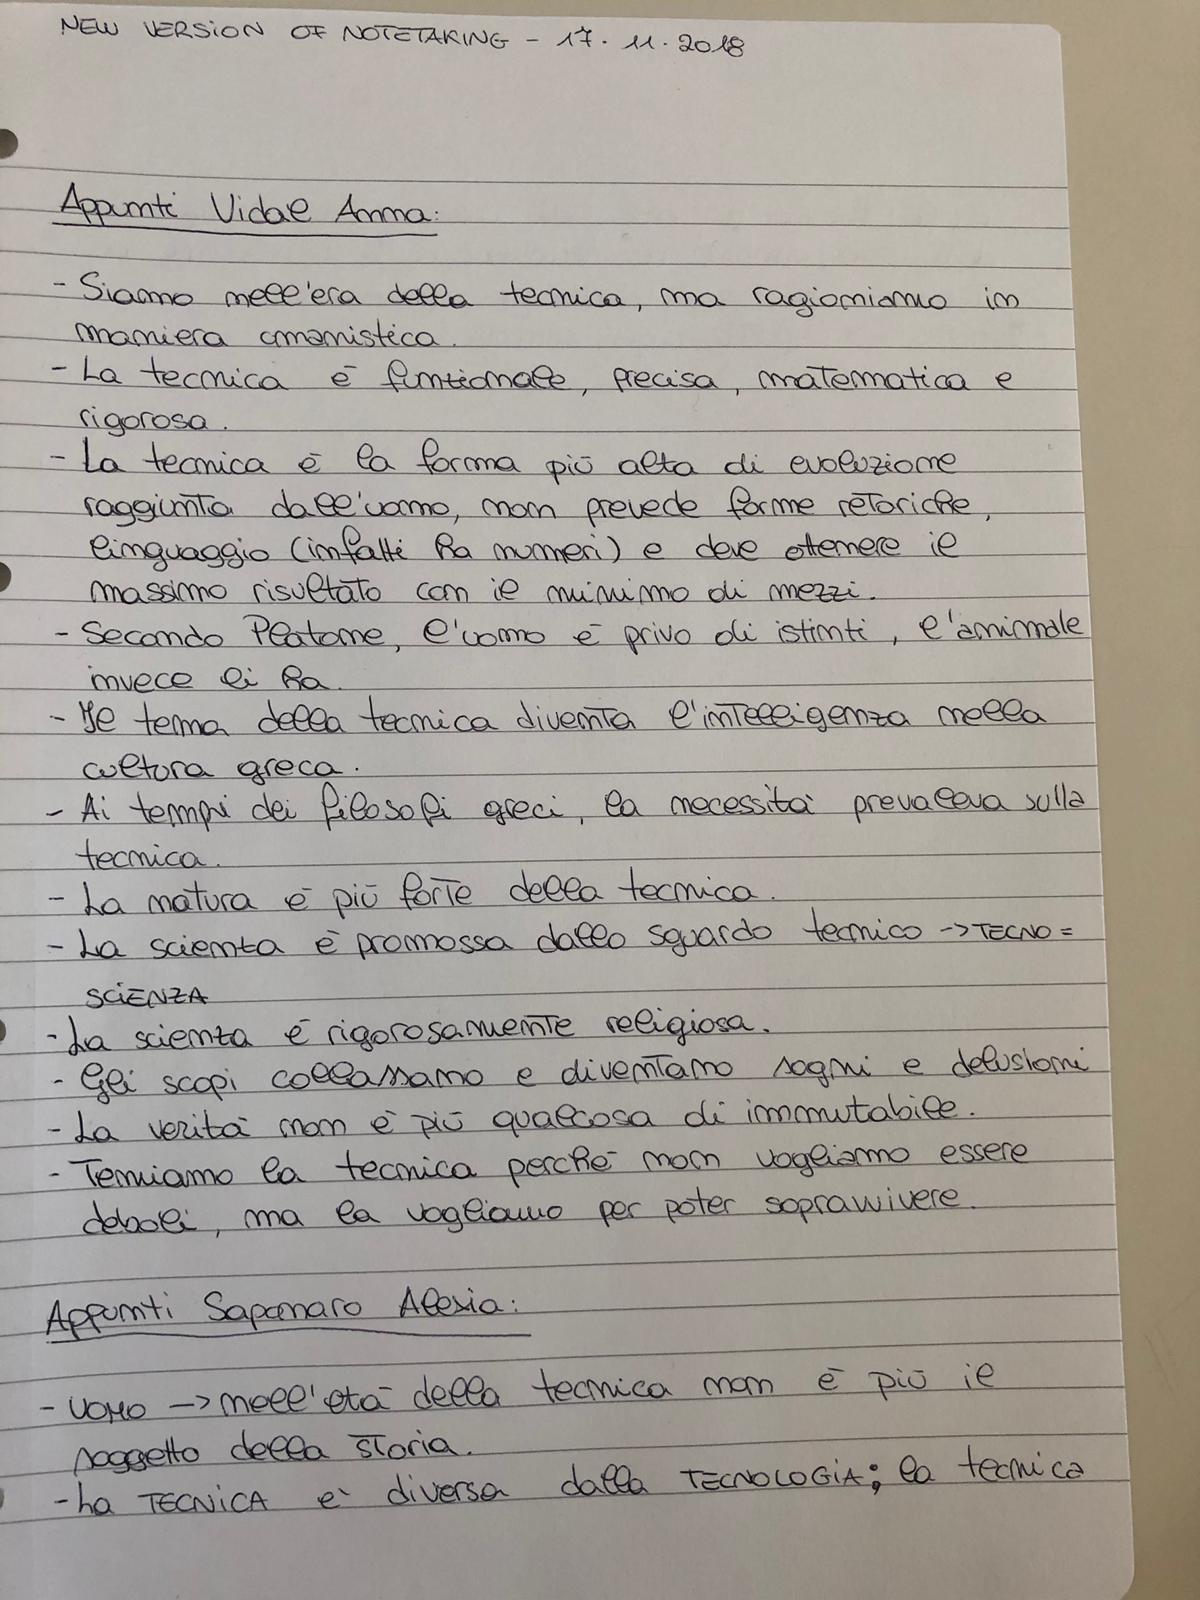 NEW VERSION OF NOTETAKING - 17.11.2018
Appunti Vidal Anna:
- Siamo nell'era della tecnica, ma ragioniamo in
maniera umanistica.
- La tecnica è funzionale, precisa, matematica e
rigorosa.
- La tecnica è la forma più alta di evoluzione
raggiunta dall'uomo, non prevede forme retoriche,
linguaggio (infatti ha numeri) e deve ottenere il
massimo risultato con il minimo di mezzi.
- Secondo Platone, l'uomo è privo di istinti, l'animale
invece li ha.
- Il tema della tecnica diventa l'intelligenza nella
cultura greca.
- Ai tempi dei filosofi greci, la necessità prevaleva sulla
tecnica.
- La natura è più forte della tecnica.
- La scienza è promossa dallo sguardo tecnico -> TECNO=
SCIENZA
- La scienza è rigorosamente religiosa.
- Gli scopi collassano e diventano sogni e delusioni
- La verità non è più qualcosa di immutabile.
- Temiamo la tecnica perché non vogliamo essere
deboli, ma la vogliamo per poter sopravvivere.
Appunti Saponaro Alexia:
- UOMO -> nell'età della tecnica non è più il
soggetto della storia.
- La TECNICA è diversa dalla TECNOLOGIA; la tecnica